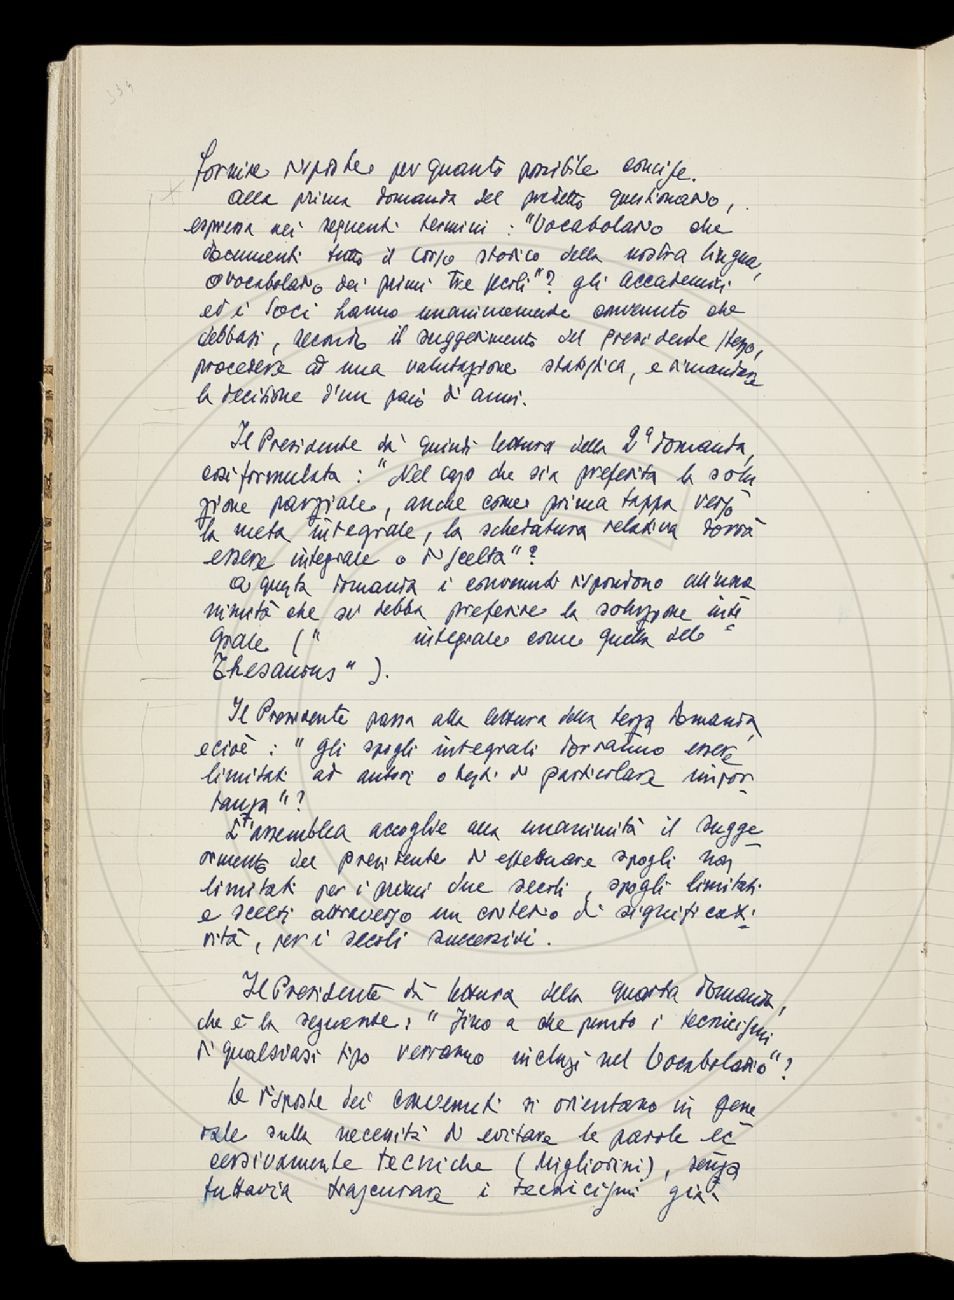 334
fornire risposte per quanto possibile concise.
Alla prima domanda del predetto questionario,
espressa nei seguenti termini : "Vocabolario che
documenti tutto il corso storico della nostra lingua,
o vocabolario dei primi tre secoli"? gli Accademici
ed i Soci hanno unanimemente convenuto che
debbasi, secondo il suggerimento del Presidente stesso,
procedere ad una valutazione statistica, e rimandare
la decisione d'un paio di anni.
Il Presidente dà quindi lettura della 2ª domanda,
così formulata : "Nel caso che sia preferita la solu
zione parziale, anche come prima tappa verso
la meta integrale, la schedatura relativa dovrà
essere integrale o di scelta"?
A questa domanda i convenuti rispondono all'una
nimità che si debba preferire la soluzione inte
grale ("          integrale come quella del
Thesaurus").
Il Presidente passa alla lettura della terza domanda,
e cioè : "Gli spogli integrali dovranno essere
limitati ad autori o testi di particolare impor-
tanza"?
L'assemblea accoglie alla unanimità il sugge
rimento del presidente di effettuare spogli non
limitati per i primi due secoli, spogli limitati
e scelti attraverso un criterio di significati-
vità, per i secoli successivi.
Il Presidente dà lettura della quarta domanda,
che è la seguente : "Fino a che punto i tecnicismi
di qualsiasi tipo verranno inclusi nel Vocabolario"?
Le risposte dei convenuti si orientano in gene
rale sulla necessità di evitare le parole ec
cessivamente tecniche (Migliorini), senza
tuttavia trascurare i tecnicismi già